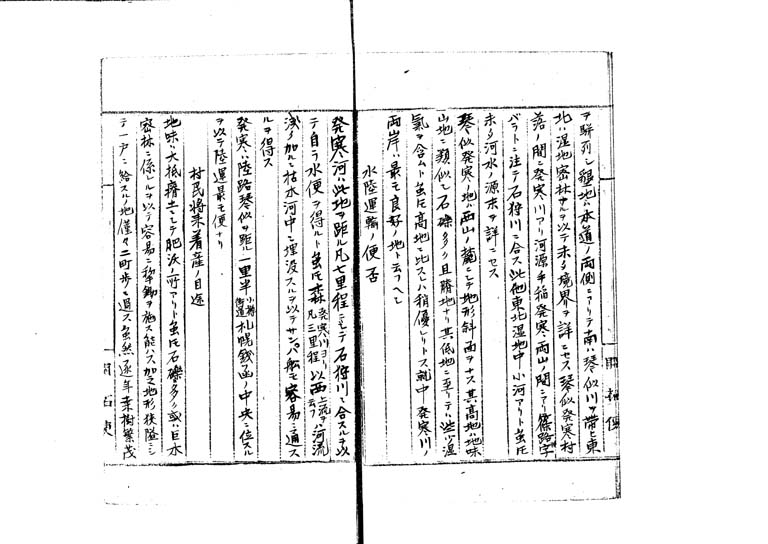 ヲ駢列シ墾地ハ本道ノ両側ニアリテ南ハ琴似川ヲ帯ヒ東
北ハ湿地密林ナルヲ以テ未タ境界ヲ詳ニセス琴似発寒村
落ノ間ニ発寒川アリ河源手稲発寒両山ノ間ニアリ篠路字
バラトニ注テ石狩川ニ合ス此他東北湿地中小河アリト虽モ
未タ河水ノ源末ヲ詳ニセス
琴似発寒ノ地ハ西山ノ麓ニシテ地形斜面ヲナス其高地ハ地味
山地ニ類似シ石礫多ク且瘠地ナリ其低地ニ至リテハ些少湿
氣ヲ含ムト虽モ高地ニ比スレハ稍優レリトス就中発寒川ノ
両岸ハ最モ良好ノ地ト云フヘシ
水陸運輸ノ便否
発寒河ハ此地ヲ距ル凡七里程ニシテ石狩川ニ合スルヲ以
テ自ラ水便ヲ得ルト虽モ森 発寒川ヨリ以西凡三里程 上流ヲ云フ 河流
浅ク加ルニ枯木河中ニ埋没スルヲ以テサンパ舩モ容易ニ通ス
ルヲ得ス
発寒ハ陸路琴似ヲ距ル一里半 小樽街道 札幌銭函ノ中央ニ位スル
ヲ以テ陸運最モ便ナリ
村民将来着産ノ目途
地味ハ大抵瘠土ニシテ肥沃ノ所アリト虽モ石礫多ク或ハ巨木
密林ニ係レルヲ以テ容易ニ犂鋤ヲ施ス能ハス加之地形狭隘ニシ
テ一戸ニ給スルノ地僅々二町歩ニ過ス虽然逐年桒樹繁茂
開拓使
開拓使